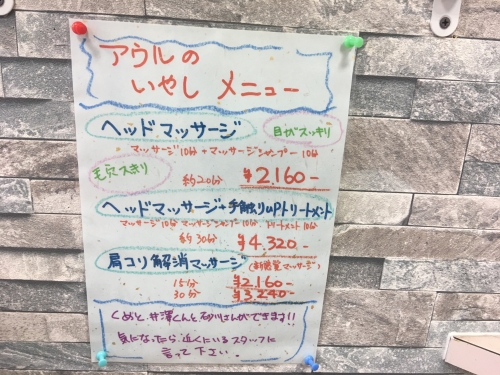 アウルの
いやし メニュー
ヘッドマッサージ
目がスッキリ
マッサージ10分+マッサージシャンプー10分
毛穴スッキリ
約20分 ¥2,160-
ヘッドマッサージ+手触りUPトリートメント
マッサージ10分 マッサージシャンプー10分 トリートメント10分
約30分 ¥4,320-
肩コリ解消マッサージ
マッサージ)
15分 ¥2,160-
30分 ¥3,240-
くめと、井澤さんと石川さんができます!!
気になったら近くにいるスタッフに
言って下さい。